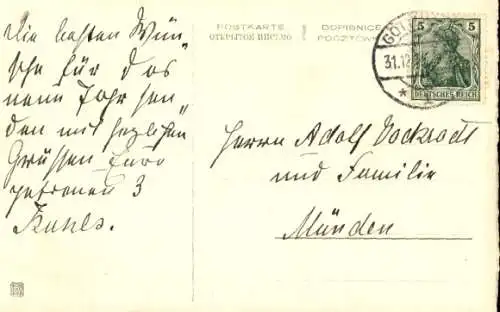 Die besten Wün-
sche für das
neue Jahr sen-
den mit herzlichen
Grüssen Eure
getreuen 3
Kuhls.
POSTKARTE
ОТКРЫТОЕ ПИСЬМО
DOPISNICE
POCZTÓWKA
GÖT
31.12
5 5
DEUTSCHES REICH
Herrn Adolf Vockrodt
und Familie
Münden